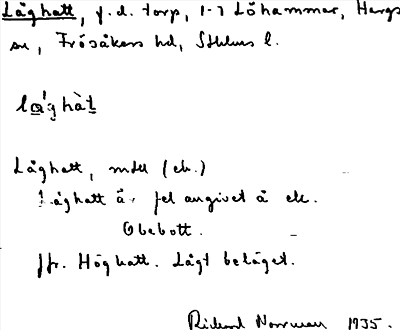 Låghatt, f.d. torp, 1-7 Löhammar, Hargs
sn, Frösåkers hd, Sthlms l.
Låghatt, mtl (ek.)
Låghatt är fel angivet å ek.
Obebott.
Jfr. Höghatt. Lågt beläget.
Rickard Norrman 1935.